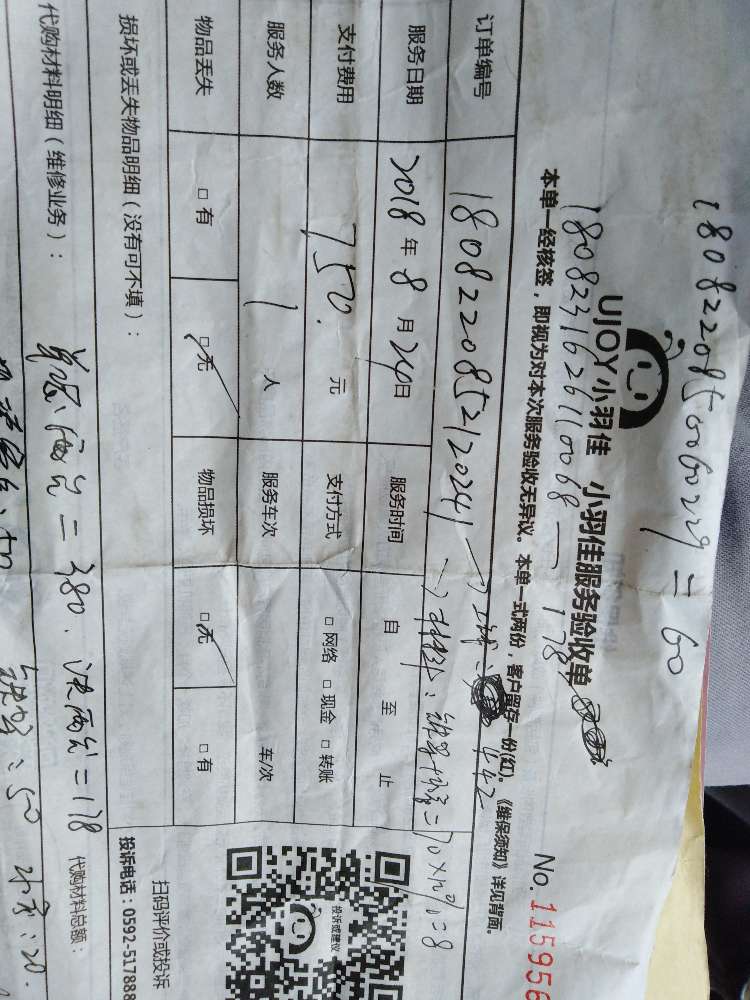 1808220850060229 = 60
UJOY小羽佳 小羽佳服务验收单
1808231626110068 — 178
No. 115956
本单一经核签，即视为对本次服务验收无异议。本单一式两份，客户留存一份(红)。《维保须知》详见背面。
订单编号 1808220852120241 → 442
服务日期 2018年8月24日 服务时间 自 至 止
→ 材料： = 70×12% = 8
支付费用 750. 元 支付方式 □ 网络 □ 现金 □ 转账
服务人数 1 人 服务车次 车/次
物品丢失 □ 有 □ 无 物品损坏 □ 无 □ 有
损坏或丢失物品明细（没有可不填）：
扫码评价或投诉
投诉电话：0592-517888
投诉或建议
代购材料明细（维修业务）：
= 380. 洗两台 = 178
代购材料总额：
: 50
: 20.